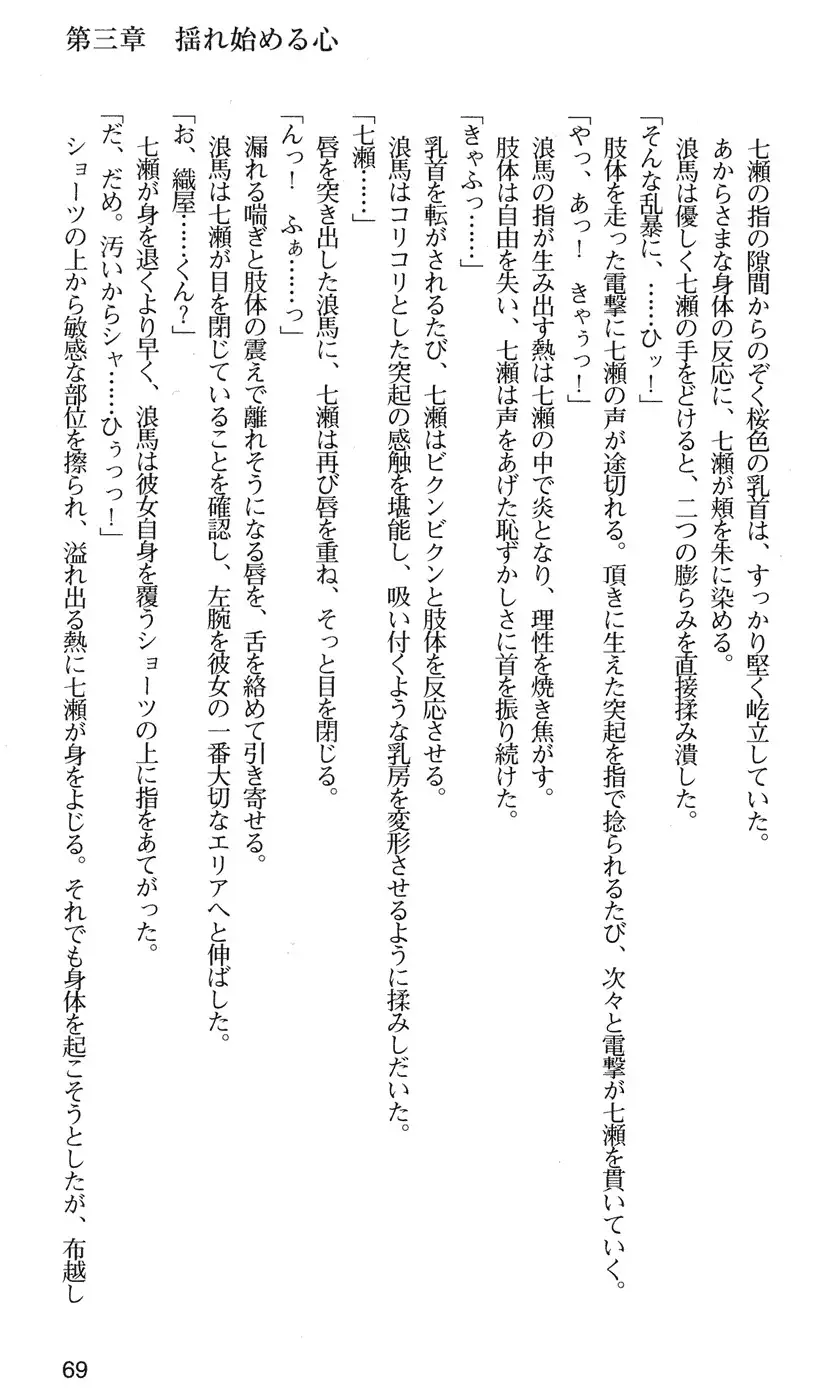 第三章　揺れ始める心
七瀬の指の隙間からのぞく桜色の乳首は、すっかり堅く屹立していた。
あからさまな身体の反応に、七瀬が頬を朱に染める。
浪馬は優しく七瀬の手をどけると、二つの膨らみを直接揉み潰した。
「そんな乱暴に、……ひッ！」
肢体を走った電撃に七瀬の声が途切れる。頂きに生えた突起を指で捻られるたび、次々と電撃が七瀬を貫いていく。
「やっ、あっ！　きゃぅっ！」
浪馬の指が生み出す熱は七瀬の中で炎となり、理性を焼き焦がす。
肢体は自由を失い、七瀬は声をあげた恥ずかしさに首を振り続けた。
「きゃふっ……」
乳首を転がされるたび、七瀬はビクンビクンと肢体を反応させる。
浪馬はコリコリとした突起の感触を堪能し、吸い付くような乳房を変形させるように揉みしだいた。
「七瀬……」
唇を突き出した浪馬に、七瀬は再び唇を重ね、そっと目を閉じる。
「んっ！　ふぁ……っ」
漏れる喘ぎと肢体の震えで離れそうになる唇を、舌を絡めて引き寄せる。
浪馬は七瀬が目を閉じていることを確認し、左腕を彼女の一番大切なエリアへと伸ばした。
「お、織屋……くん？」
七瀬が身を退くより早く、浪馬は彼女自身を覆うショーツの上に指をあてがった。
「だ、だめ。汚いからシャ……ひぅっっ！」
ショーツの上から敏感な部位を擦られ、溢れ出る熱に七瀬が身をよじる。それでも身体を起こそうとしたが、布越し
69